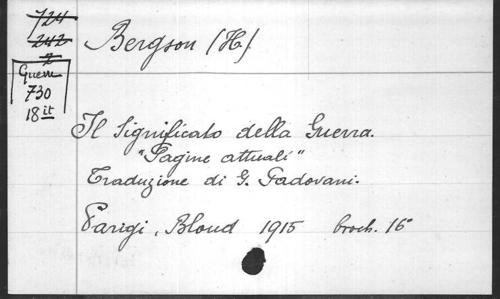 724
242
2
Guerre
730
18 it
Bergson (H).
Il Significato della Guerra.
"Pagine attuali"
Traduzione di G. Padovani.
Parigi, Bloud 1915 broch. 16°